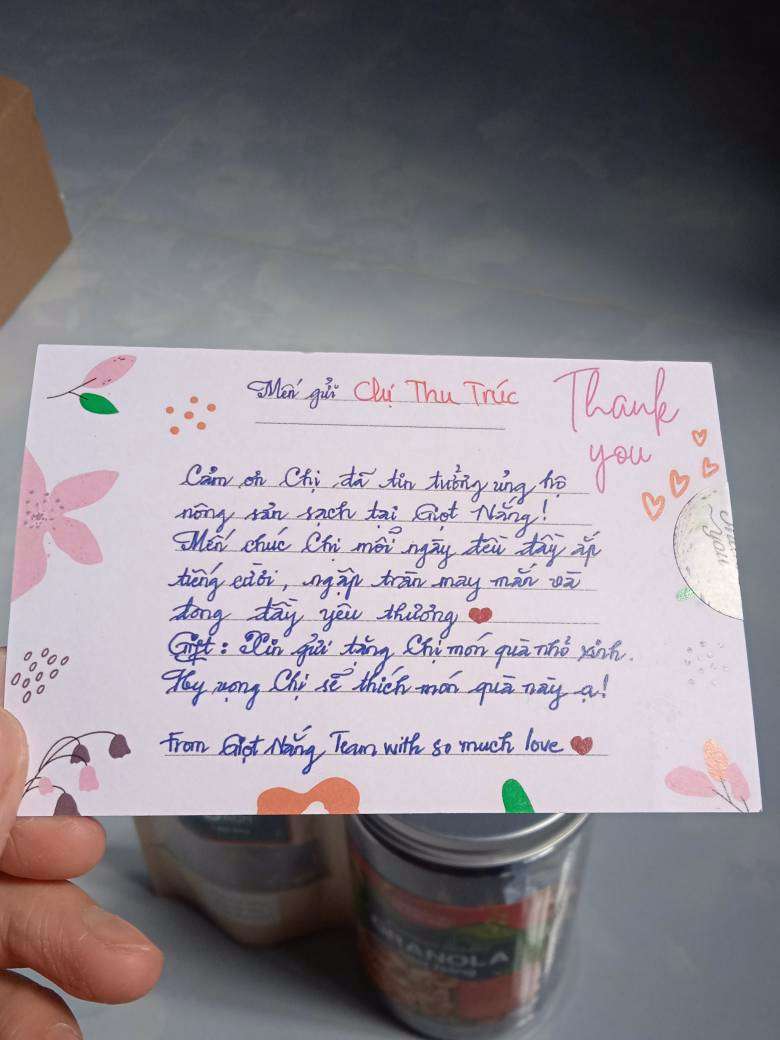 Mến gửi Chị Thu Trúc
Thank
you
Cảm ơn Chị đã tin tưởng ủng hộ
nông sản sạch tại Giọt Nắng!
Mến chúc Chị mỗi ngày đều đầy ắp
tiếng cười, ngập tràn may mắn và
đong đầy yêu thương ❤
Gift: Xin gửi tặng Chị món quà nhỏ xinh.
Hy vọng Chị sẽ thích món quà này ạ!
From Giọt Nắng Team with so much love ❤
you
GRANOLA